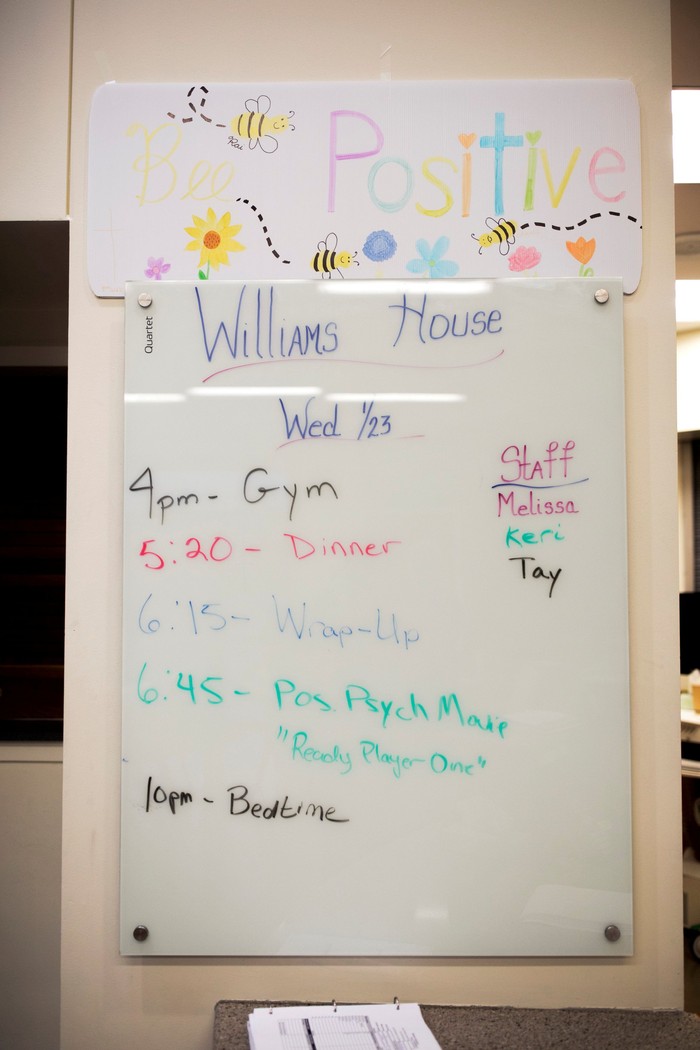 Bee Positive
Rai
Quartet
Williams House
Wed 1/23
4pm - Gym
5:20 - Dinner
6:15 - Wrap-Up
6:45 - Pos. Psych Movie
"Ready Player One"
10pm - Bedtime
Staff
Melissa
Keri
Tay